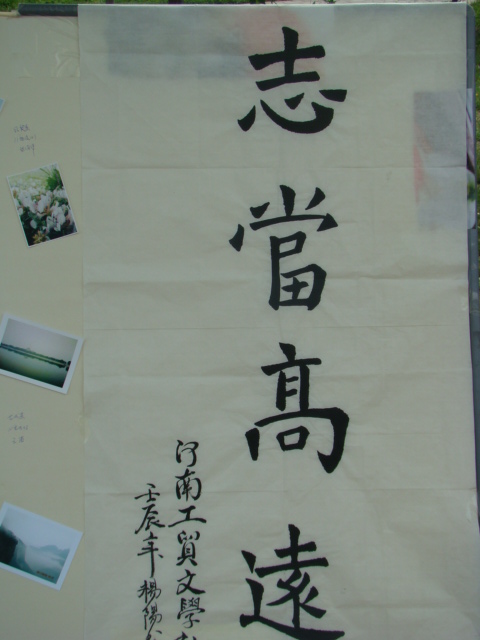 志當髙遠
河南工貿文學
壬辰年楊陽